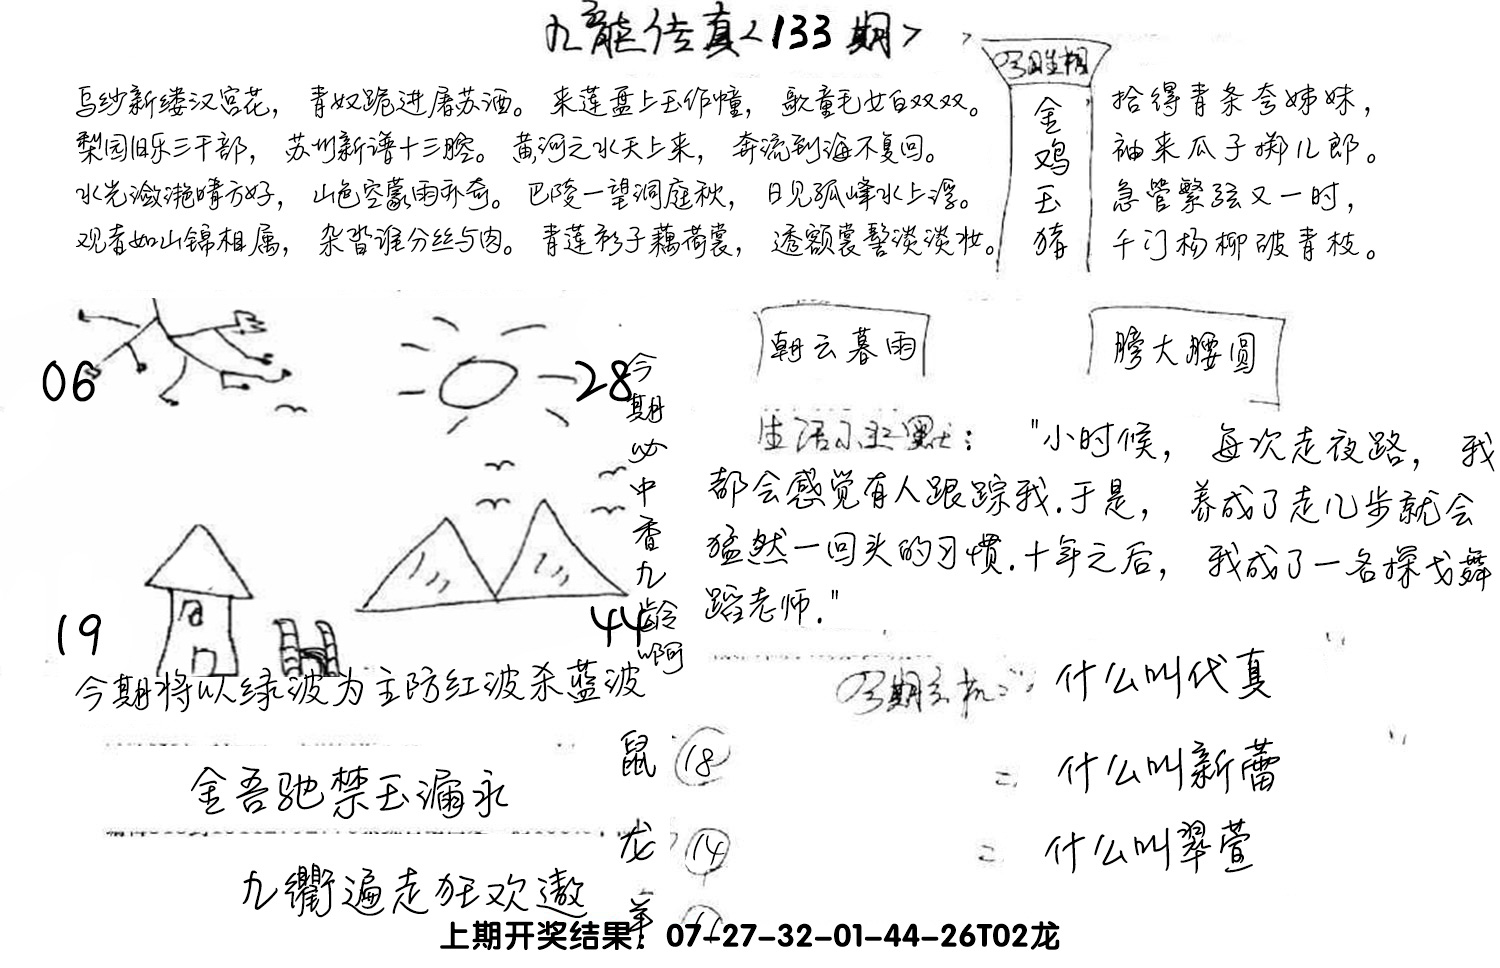 九龙传真<133期>
乌纱新缕汉宫花，青奴跪进屠苏酒。来莲盘上玉作幢，歌童毛女白双双。
梨园旧乐三千部，苏州新谱十三腔。黄河之水天上来，奔流到海不复回。
水光潋滟晴方好，山色空蒙雨亦奇。巴陵一望洞庭秋，日见孤峰水上浮。
观者如山锦相属，杂沓谁分丝与肉。青莲衫子藕荷裳，透额裳髻淡淡妆。
金鸡玉猪
拾得青条夸姊妹，
袖来瓜子掷儿郎。
急管繁弦又一时，
千门杨柳破青枝。
06
28
19
44
今期必中香九龄啊
朝云暮雨
膀大腰圆
生活小幽默："小时候，每次走夜路，我
都会感觉有人跟踪我.于是，养成了走几步就会
猛然一回头的习惯.十年之后，我成了一名探戈舞
蹈老师."
今期将以绿波为主防红波杀蓝波
今期玄机
什么叫代真
什么叫新蕾
什么叫翠萱
鼠 18
龙 14
羊 11
金吾驰禁玉漏永
九衢遍走狂欢遨
上期开奖结果：07-27-32-01-44-26T02龙